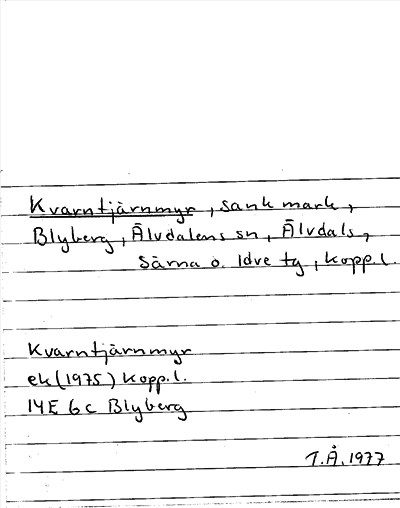 Kvarntjärnmyr, sank mark,
Blyberg, Älvdalens sn, Älvdals,
Särna o. Idre tg, Kopp.l.
Kvarntjärnmyr
ek (1975) Kopp.l.
14E 6c Blyberg
T.Å. 1977